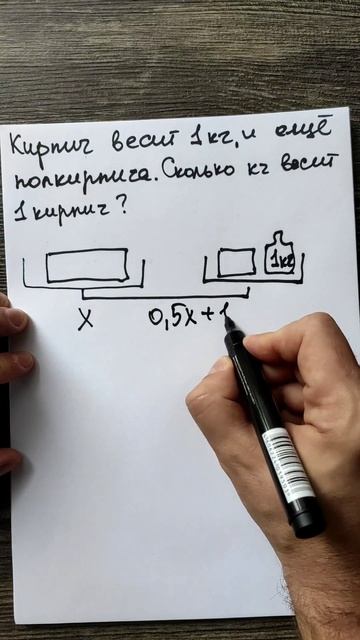 Кирпич весит 1кг, и ещё
полкирпича. Сколько кг весит
1 кирпич?
1кг
X 0,5X+1